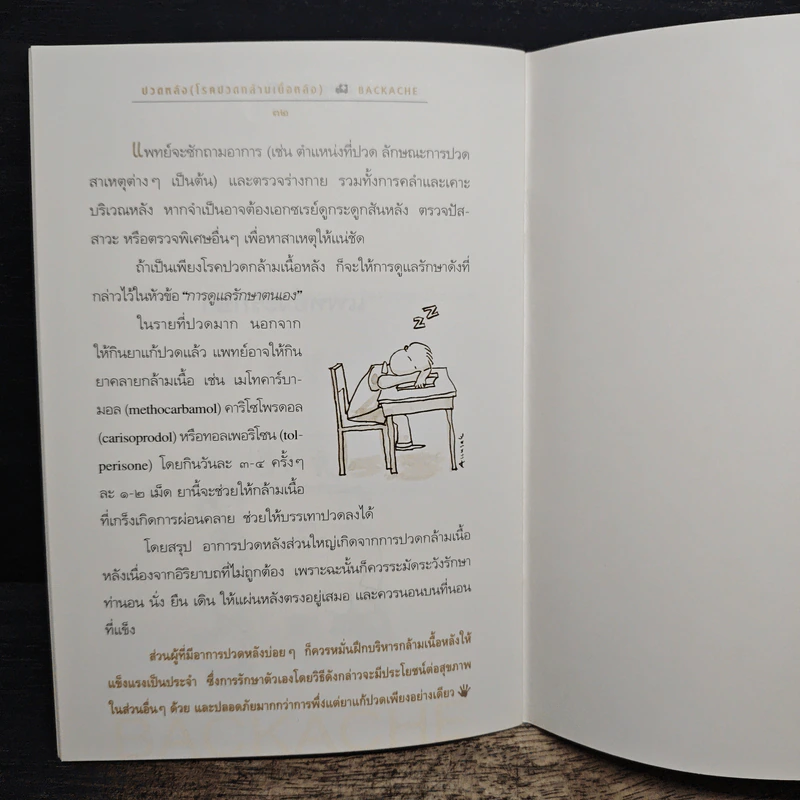 ปวดหลัง(โรคปวดกล้ามเนื้อหลัง) BACKACHE
๓๒
แพทย์จะซักถามอาการ (เช่น ตำแหน่งที่ปวด ลักษณะการปวด
สาเหตุต่างๆ เป็นต้น) และตรวจร่างกาย รวมทั้งการคลำและเคาะ
บริเวณหลัง หากจำเป็นอาจต้องเอกซเรย์ดูกระดูกสันหลัง ตรวจปัส-
สาวะ หรือตรวจพิเศษอื่นๆ เพื่อหาสาเหตุให้แน่ชัด
ถ้าเป็นเพียงโรคปวดกล้ามเนื้อหลัง ก็จะให้การดูแลรักษาดังที่
กล่าวไว้ในหัวข้อ “การดูแลรักษาตนเอง”
ในรายที่ปวดมาก นอกจาก
ให้กินยาแก้ปวดแล้ว แพทย์อาจให้กิน
ยาคลายกล้ามเนื้อ เช่น เมโทคาร์บา-
มอล (methocarbamol) คาริโซโพรดอล
(carisoprodol) หรือทอลเพอริโซน (tol-
perisone) โดยกินวันละ ๓-๔ ครั้งๆ
ละ ๑-๒ เม็ด ยานี้จะช่วยให้กล้ามเนื้อ
ที่เกร็งเกิดการผ่อนคลาย ช่วยให้บรรเทาปวดลงได้
โดยสรุป อาการปวดหลังส่วนใหญ่เกิดจากการปวดกล้ามเนื้อ
หลังเนื่องจากอิริยาบถที่ไม่ถูกต้อง เพราะฉะนั้นก็ควรระมัดระวังรักษา
ท่านอน นั่ง ยืน เดิน ให้แผ่นหลังตรงอยู่เสมอ และควรนอนบนที่นอน
ที่แข็ง
ส่วนผู้ที่มีอาการปวดหลังบ่อยๆ ก็ควรหมั่นฝึกบริหารกล้ามเนื้อหลังให้
แข็งแรงเป็นประจำ ซึ่งการรักษาตัวเองโดยวิธีดังกล่าวจะมีประโยชน์ต่อสุขภาพ
ในส่วนอื่นๆ ด้วย และปลอดภัยมากกว่าการพึ่งแต่ยาแก้ปวดเพียงอย่างเดียว
zz